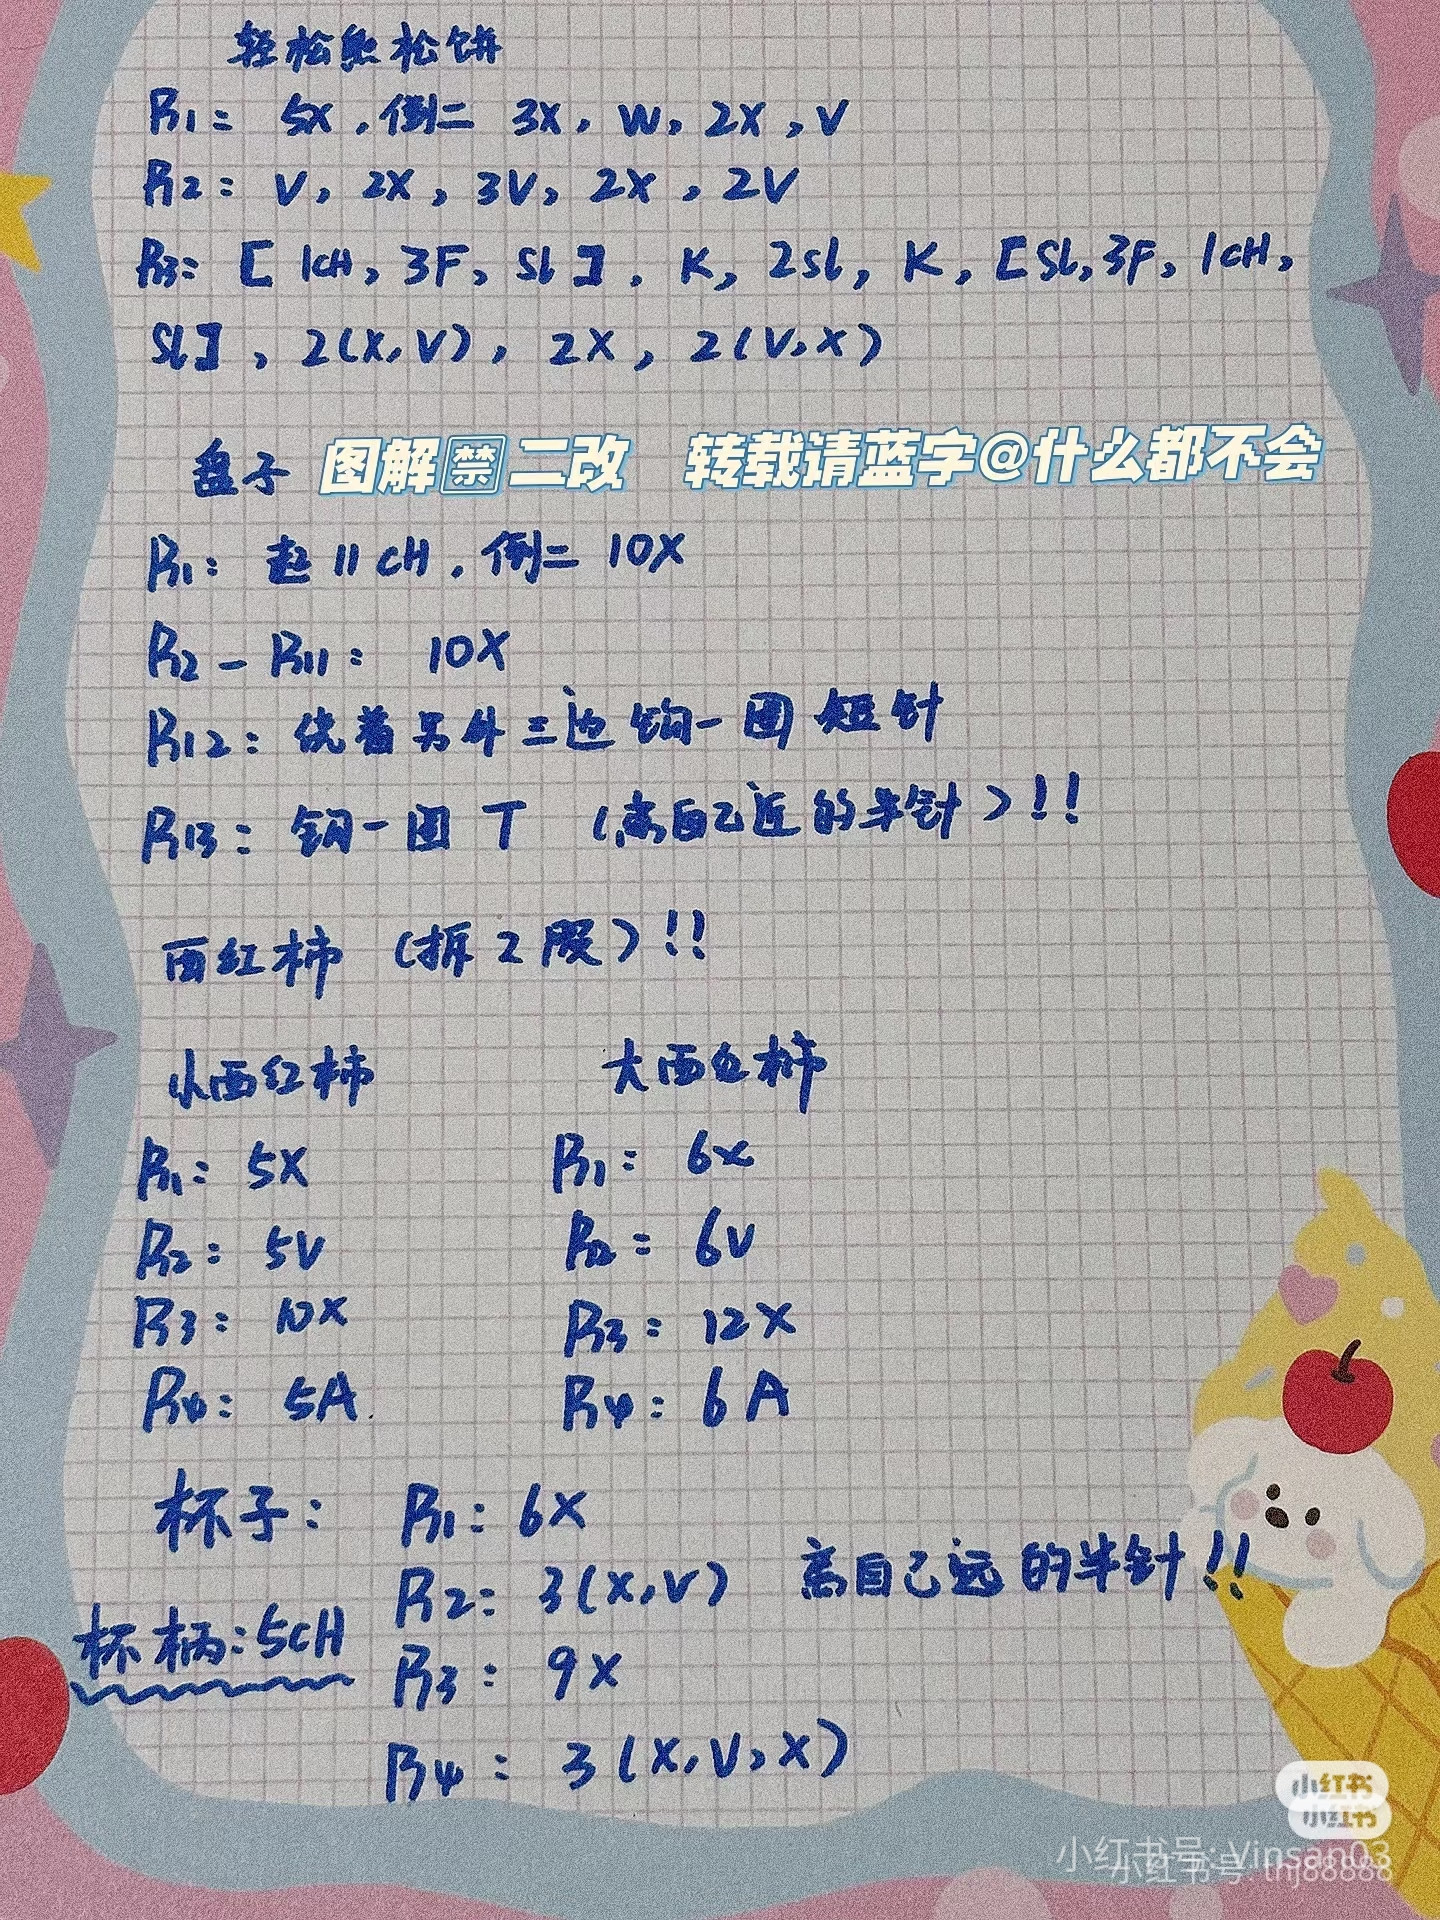 轻松熊松饼
R1: 5X,倒二 3X, W, 2X, V
R2: V, 2X, 3V, 2X, 2V
R3: [1CH, 3F, SL], K, 2SL, K, [SL, 3F, 1CH,
SL], 2(X,V), 2X, 2(V,X)
盘子
图解禁二改 转载请蓝字@什么都不会
R1: 起11CH.倒二 10X
R2-R11: 10X
R12: 绕着另外三边钩一圈短针
R13: 钩一圈T (离自己近的半针)!!
西红柿 (拆2股)!!
小西红柿
R1: 5X
R2: 5V
R3: 10X
R4: 5A.
大西红柿
R1: 6X
R2: 6V
R3: 12X
R4: 6A
杯子: R1: 6X
R2: 3(X,V) 离自己远的半针!!
杯柄:5CH
R3: 9X
R4: 3(X,V,X)
小红书
小红书
小红书号: Vinsan03
小红书号: